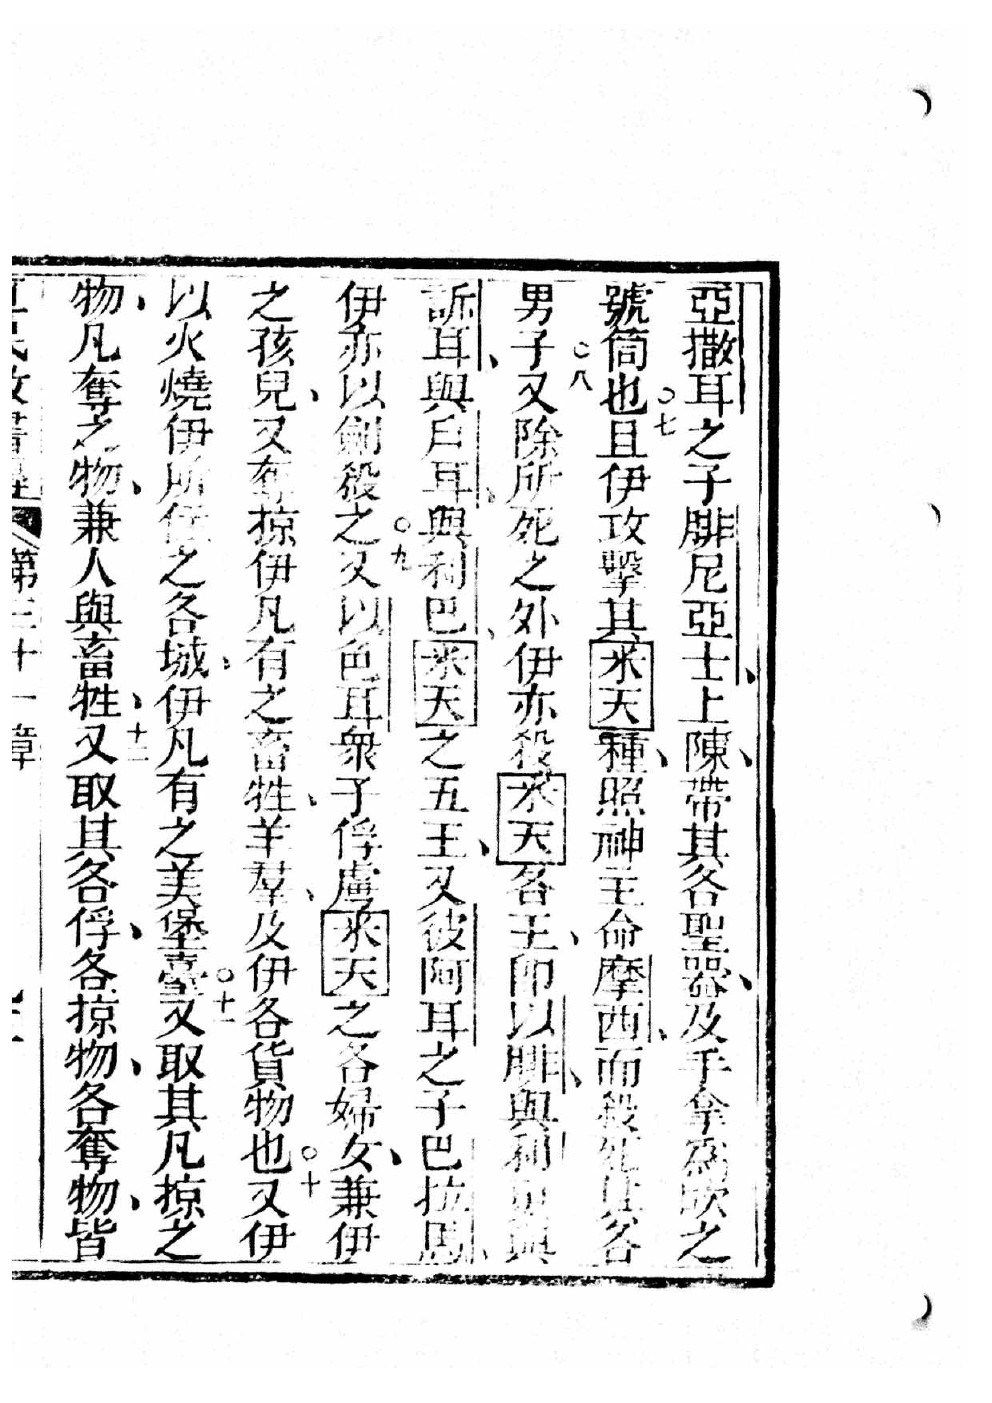 亞撒耳之子腓尼亞士上陳、帶其各聖器、及手拿為吹之
號筒也○七且伊攻擊其米天種、照神主命摩西、而殺死其各
男子○八又除所死之外伊亦殺米天各王、即以腓、與利與
訴耳、與戶耳、與利巴、米天之五王、又彼阿耳之子巴拉馬、
伊亦以劍殺之○九又以色耳衆子俘虜米天之各婦女、兼伊
之孩兒、又奪掠伊凡有之畜牲、羊羣、及伊各貨物也○十又伊
以火燒伊所住之各城、伊凡有之美堡臺○十一又取其凡掠之
物、凡奪之物、兼人與畜牲、十二又取其各俘、各掠物、各奪物、皆
第三十一章